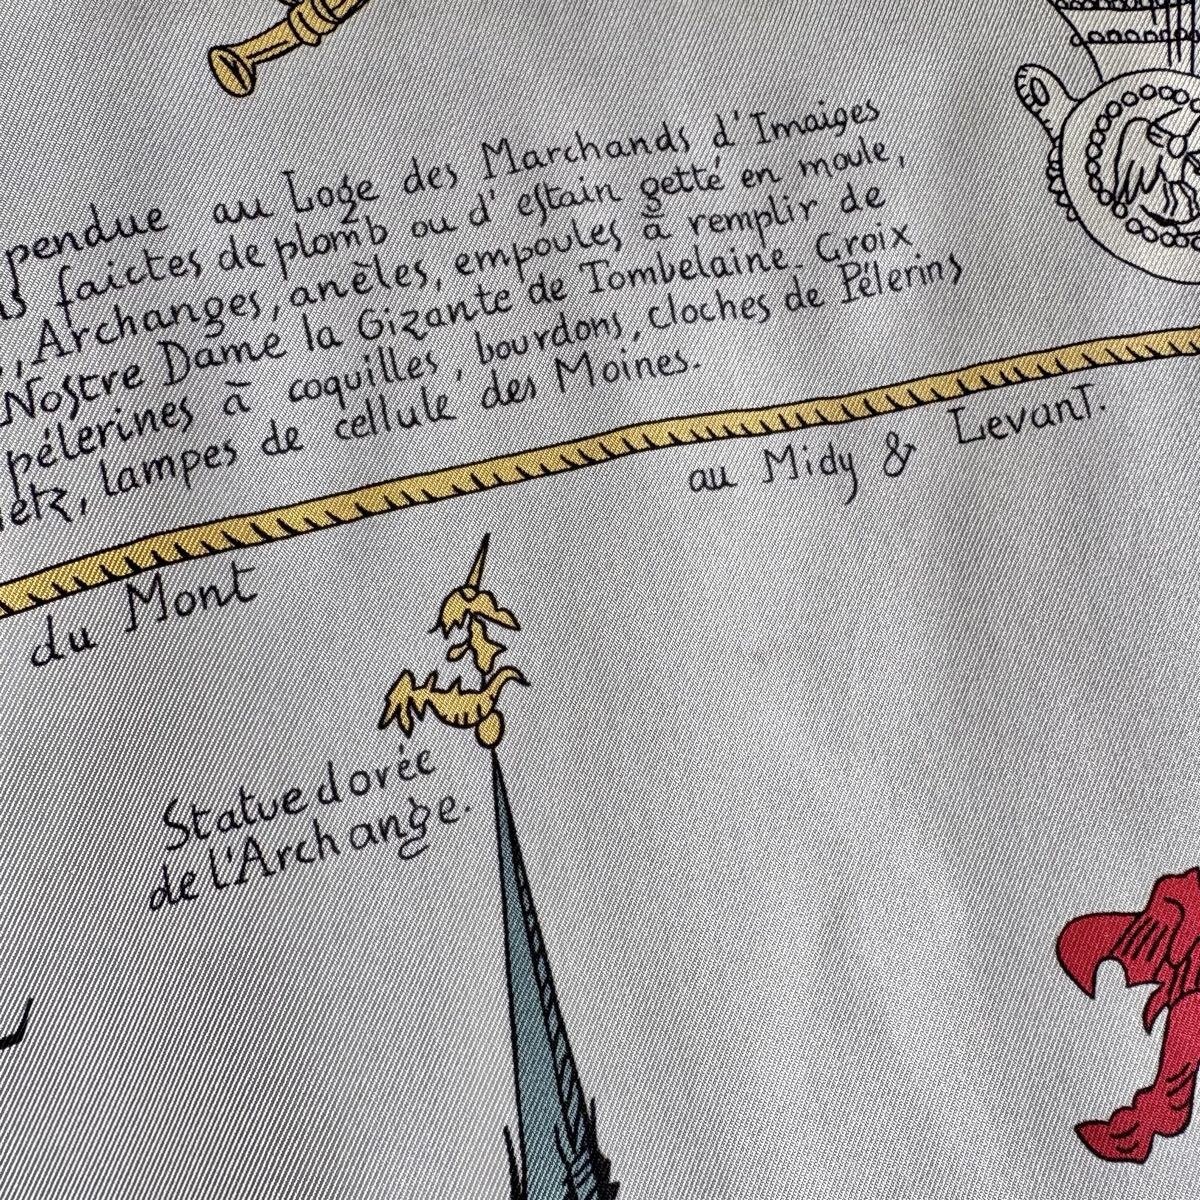 pendue au Loge des Marchands d'Imaiges
faictes de plomb ou d'estain getté en moule,
, Archanges, anèles, empoules à remplir de
Nostre Dame la Gizante de Tombelaine. Croix
pélerines à coquilles, bourdons, cloches de Pélerins
etz, lampes de cellule des Moines.
au Midy & Levant.
du Mont
Statue dorée
de l'Archange.